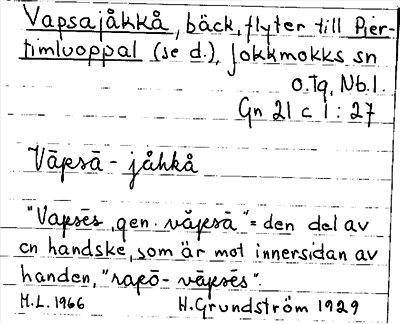 Vapsajåkkå, bäck, flyter till Pjer-
timluoppal (se d.), Jokkmokks sn
o.tg, Nb.l.
Gn 21 c 1 : 27
Vāpsā - jåhkå
"Vapsēs, gen. vǎpsā" = den del av
en handske, som är mot innersidan av
handen, "rapō- vāpsēs".
H.L. 1966 H.Grundström 1929